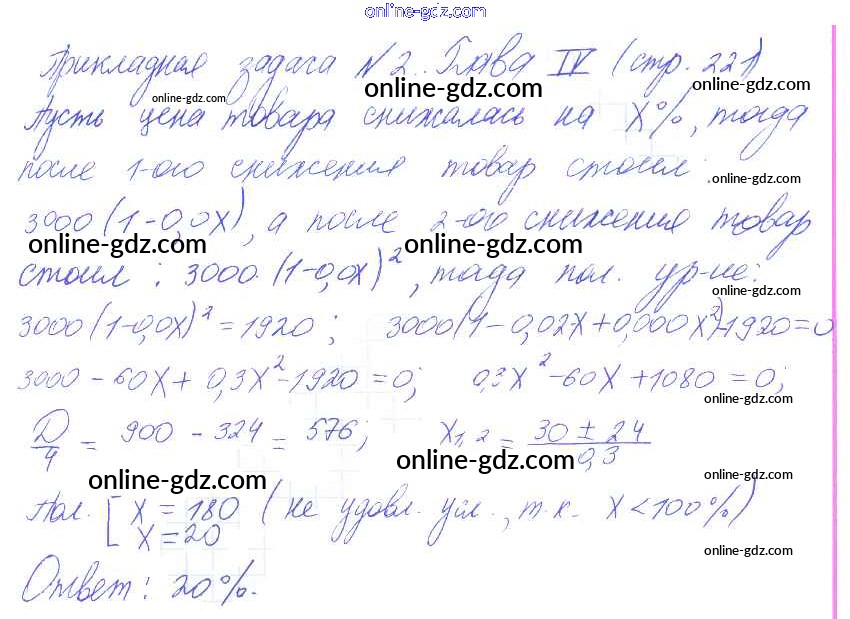 online-gdz.com
Прикладная задача N 2. Глава IV (стр. 221)
online-gdz.com online-gdz.com online-gdz.com
Пусть цена товара снижалась на X%, тогда
после 1-ого снижения товар стоил
online-gdz.com
3000(1-0,0X), а после 2-ого снижения товар
online-gdz.com online-gdz.com
стоил: 3000(1-0,0X)², тогда пол. ур-ие:
online-gdz.com
3000(1-0,0X)² = 1920; 3000(1-0,02X+0,000X²)-1920=0
3000-60X+0,3X²-1920=0; 0,3X²-60X+1080=0;
online-gdz.com
D/4 = 900-324 = 576; X1,2 = 30 ± 24 / 0,3
online-gdz.com online-gdz.com online-gdz.com
Пол. [ X = 180 (не удовл. усл., т.к. X<100%)
X = 20
online-gdz.com
Ответ: 20%.